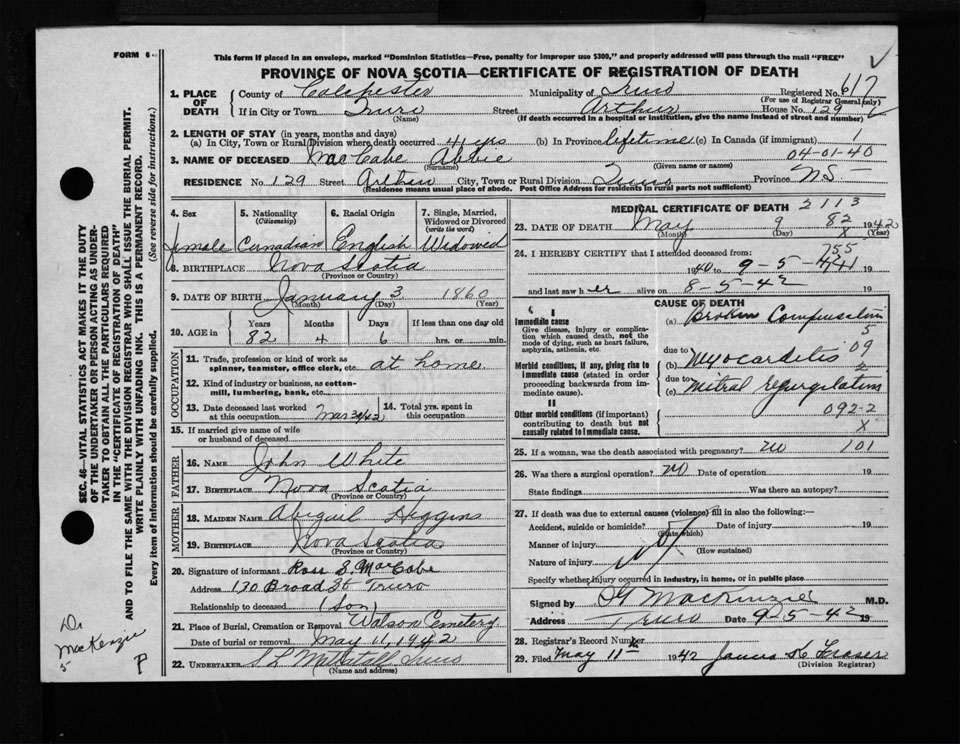 FORM 6
This form if placed in an envelope, marked "Dominion Statistics—Free, penalty for improper use $300," and properly addressed will pass through the mail "FREE"
PROVINCE OF NOVA SCOTIA—CERTIFICATE OF REGISTRATION OF DEATH
1. PLACE OF DEATH County of Colchester Municipality of Truro Registered No. 617
(For use of Registrar General only)
If in City or Town Truro Street Arthur House No. 129
(Name) (If death occurred in a hospital or institution, give the name instead of street and number)
2. LENGTH OF STAY (in years, months and days)
(a) In City, Town or Rural Division where death occurred 41 yrs (b) In Province lifetime (c) In Canada (if immigrant) 1
3. NAME OF DECEASED MacCabe Abbie 04-01-40
(Surname) (Given name or names)
RESIDENCE No. 129 Street Arthur City, Town or Rural Division Truro Province N.S.
(Residence means usual place of abode. Post Office Address for residents in rural parts not sufficient)
4. Sex 5. Nationality (Citizenship) 6. Racial Origin 7. Single, Married, Widowed or Divorced (write the word)
female Canadian English Widowed
8. BIRTHPLACE Nova Scotia
(Province or Country)
9. DATE OF BIRTH January 3 1860
(Month) (Day) (Year)
10. AGE in Years Months Days If less than one day old
82 4 6 hrs. or min.
OCCUPATION
11. Trade, profession or kind of work as spinner, teamster, office clerk, etc. at home
12. Kind of industry or business, as cotton-mill, lumbering, bank, etc.
13. Date deceased last worked at this occupation 14. Total yrs. spent in this occupation
15. If married give name of wife or husband of deceased
FATHER
16. NAME John White
17. BIRTHPLACE Nova Scotia
(Province or Country)
MOTHER
18. MAIDEN NAME Abigail Higgins
19. BIRTHPLACE Nova Scotia
(Province or Country)
20. Signature of informant Ross S. MacCabe
Address 130 Broad St Truro
Relationship to deceased (Son)
21. Place of Burial, Cremation or Removal Watson Cemetery
Date of burial or removal May 11, 1942
22. UNDERTAKER Truro
(Name and address)
MEDICAL CERTIFICATE OF DEATH 2113
23. DATE OF DEATH May 9 82 1942
(Month) (Day) X (Year)
24. I HEREBY CERTIFY that I attended deceased from: 755
1940 9-5-
and last saw her alive on 8-5-42 19
CAUSE OF DEATH
I
Immediate cause
Give disease, injury or complication which caused death, not the mode of dying, such as heart failure, asphyxia, asthenia, etc.
(a) Broken Compensation
5
due to
Morbid conditions, if any, giving rise to immediate cause (stated in order proceeding backwards from immediate cause).
(b) Myocarditis 09
2
due to
(c) Mitral regurgitation
II
Other morbid conditions (if important) contributing to death but not causally related to immediate cause.
092-2
X
25. If a woman, was the death associated with pregnancy? no 101
26. Was there a surgical operation? no Date of operation 19
State findings Was there an autopsy?
27. If death was due to external causes (violence) fill in also the following:—
Accident, suicide or homicide? Date of injury 19
(State which)
Manner of injury
(How sustained)
Nature of injury
Specify whether injury occurred in industry, in home, or in public place
Signed by MacKenzie M.D.
Address Truro Date 9-5-42 19
28. Registrar's Record Number
29. Filed May 11th 1942 James K Fraser
(Division Registrar)
SEC. 46—VITAL STATISTICS ACT MAKES IT THE DUTY
OF THE UNDERTAKER OR PERSON ACTING AS UNDER-
TAKER TO OBTAIN ALL THE PARTICULARS REQUIRED
IN THE "CERTIFICATE OF REGISTRATION OF DEATH"
AND TO FILE THE SAME WITH THE DIVISION REGISTRAR WHO SHALL ISSUE THE BURIAL PERMIT.
WRITE PLAINLY WITH UNFADING INK. THIS IS A PERMANENT RECORD.
Every item of information should be carefully supplied. (See reverse side for instructions.)
Dr
MacKenzie
5
P